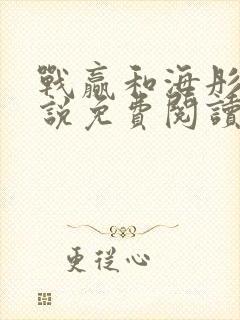 戰贏和海彤
說免費閱讀
更從心